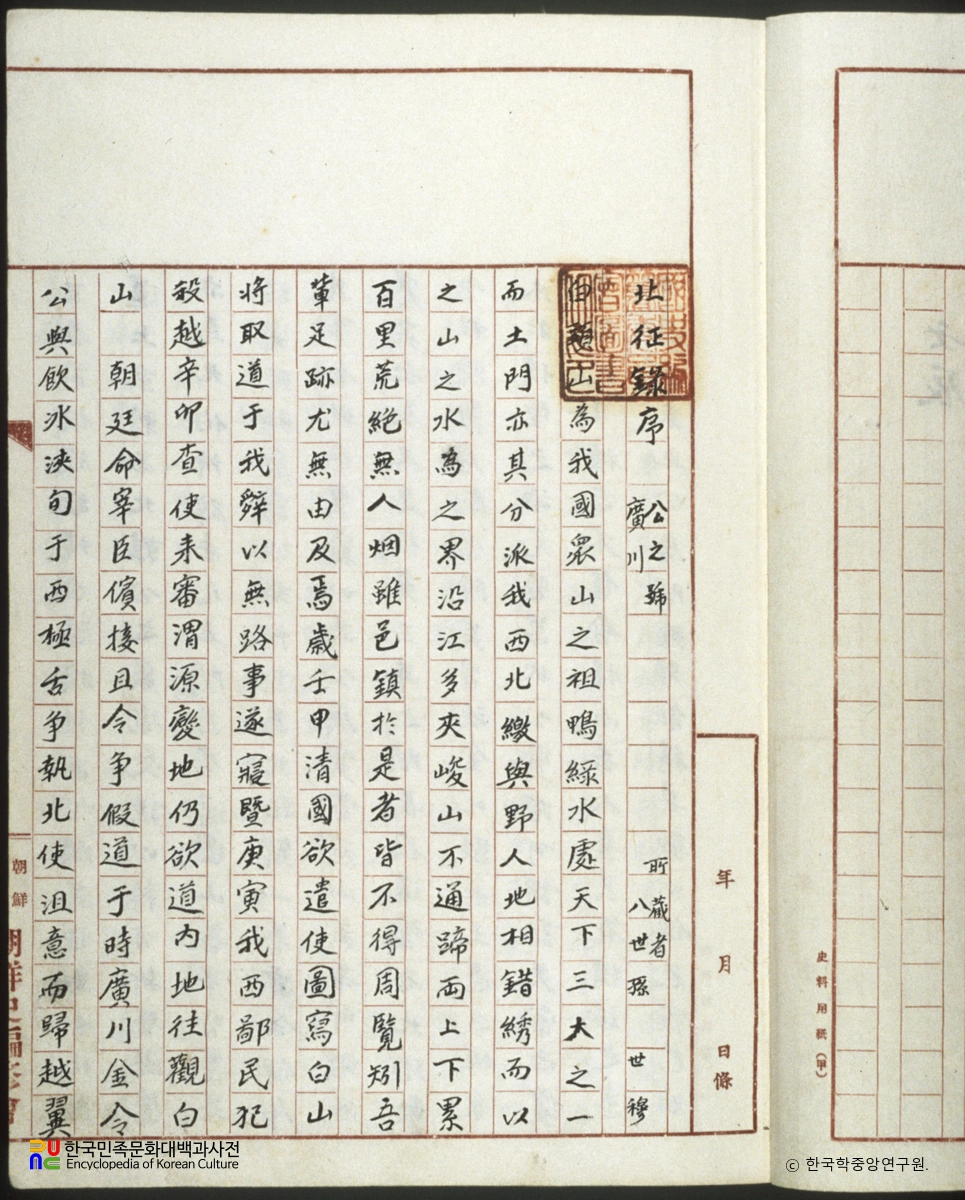 北征錄序
廣川公之號
所藏者八世孫 世穆
白頭山為我國衆山之祖鴨綠水處天下三大之一
而土門亦其分派我西北繳與野人地相錯綉而以
之山之水為之界沿江多夾峻山不通蹄兩上下累
百里荒絶無人烟雖邑鎮於是者皆不得周覽矧吾
輩足跡尤無由及焉歲壬申清國欲遣使圖寫白山
將取道于我辭以無路事遂寢暨庚寅我西鄙民犯
殺越辛卯查使来審渭源變地仍欲道內地往觀白
山 朝廷命宰臣儐接且令爭假道于時廣川金令
公與飲冰浹旬于西極舌争執北使沮意而歸越翼
年
月
日條
史料用紙(甲)
朝鮮
朝鮮史編修會
한국민족문화대백과사전
Encyclopedia of Korean Culture
© 한국학중앙연구원.